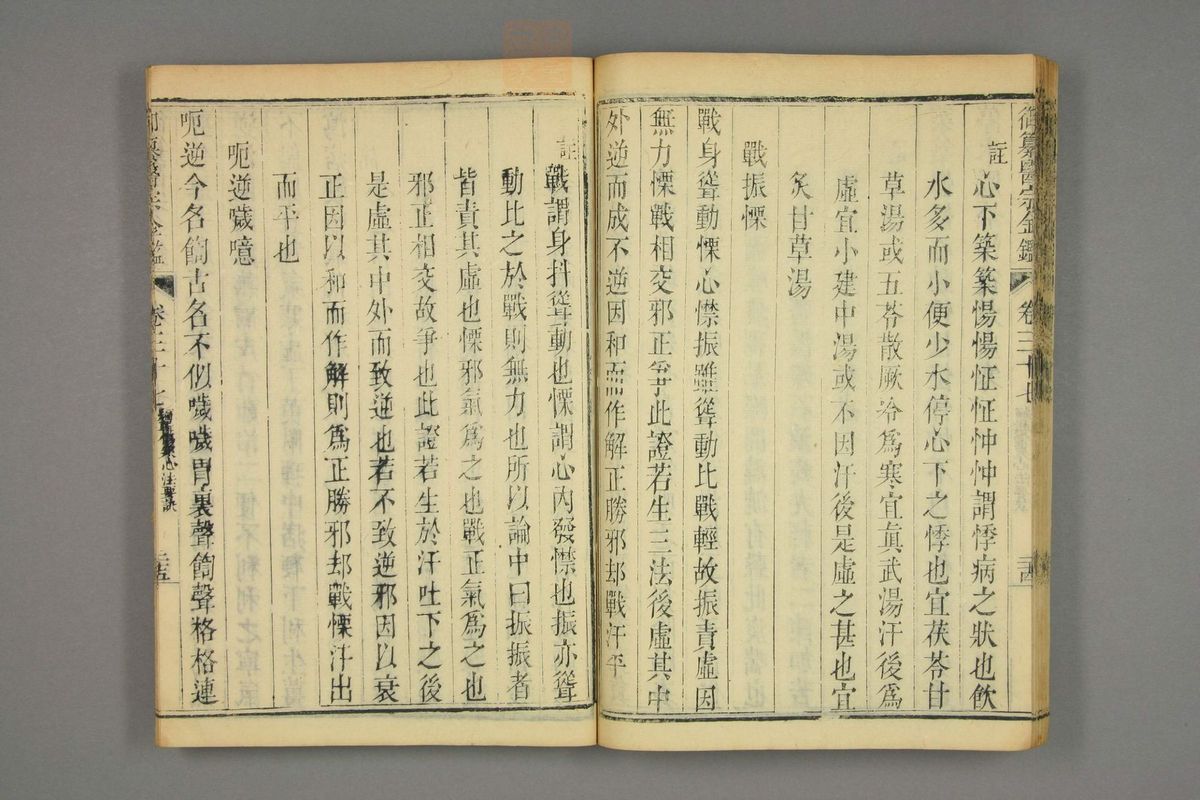 御纂醫宗金鑑 卷三十七
註 心下築築惕惕怔怔忡忡謂悸病之狀也飲
水多而小便少水停心下之悸也宜茯苓甘
草湯或五苓散厥冷為寒宜真武湯汗後為
虛宜小建中湯或不因汗後是虛之甚也宜
炙甘草湯
戰振慄
戰身聳動慄心憷振雖聳動比戰輕故振責虛因
無力慄戰相交邪正爭此證若生三法後虛其中
外逆而成不逆因和而作解正勝邪却戰汗平
註 戰謂身抖聳動也慄謂心內發憷也振亦聳
動比之於戰則無力也所以論中曰振振者
皆責其虛也慄邪氣為之也戰正氣為之也
邪正相交故爭也此證若生於汗吐下之後
是虛其中外而致逆也若不致逆邪因以衰
正因以和而作解則為正勝邪却戰慄汗出
而平也
呃逆噦噫
呃逆今名餩古名不似噦噦胃裏聲餩聲格格連
御纂醫宗金鑑 卷三十七 心法要訣 二十五